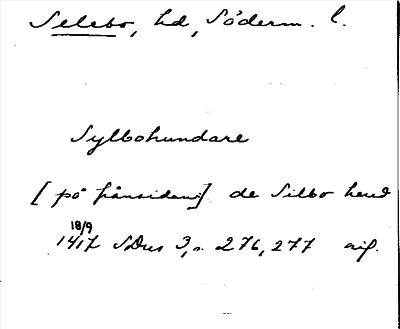 Selebo, hd, Söderm. l.
Sylbohundare
[på frånsidan] de Silbo hered
18/9
1417 SDns 3, s. 276, 277 avs.